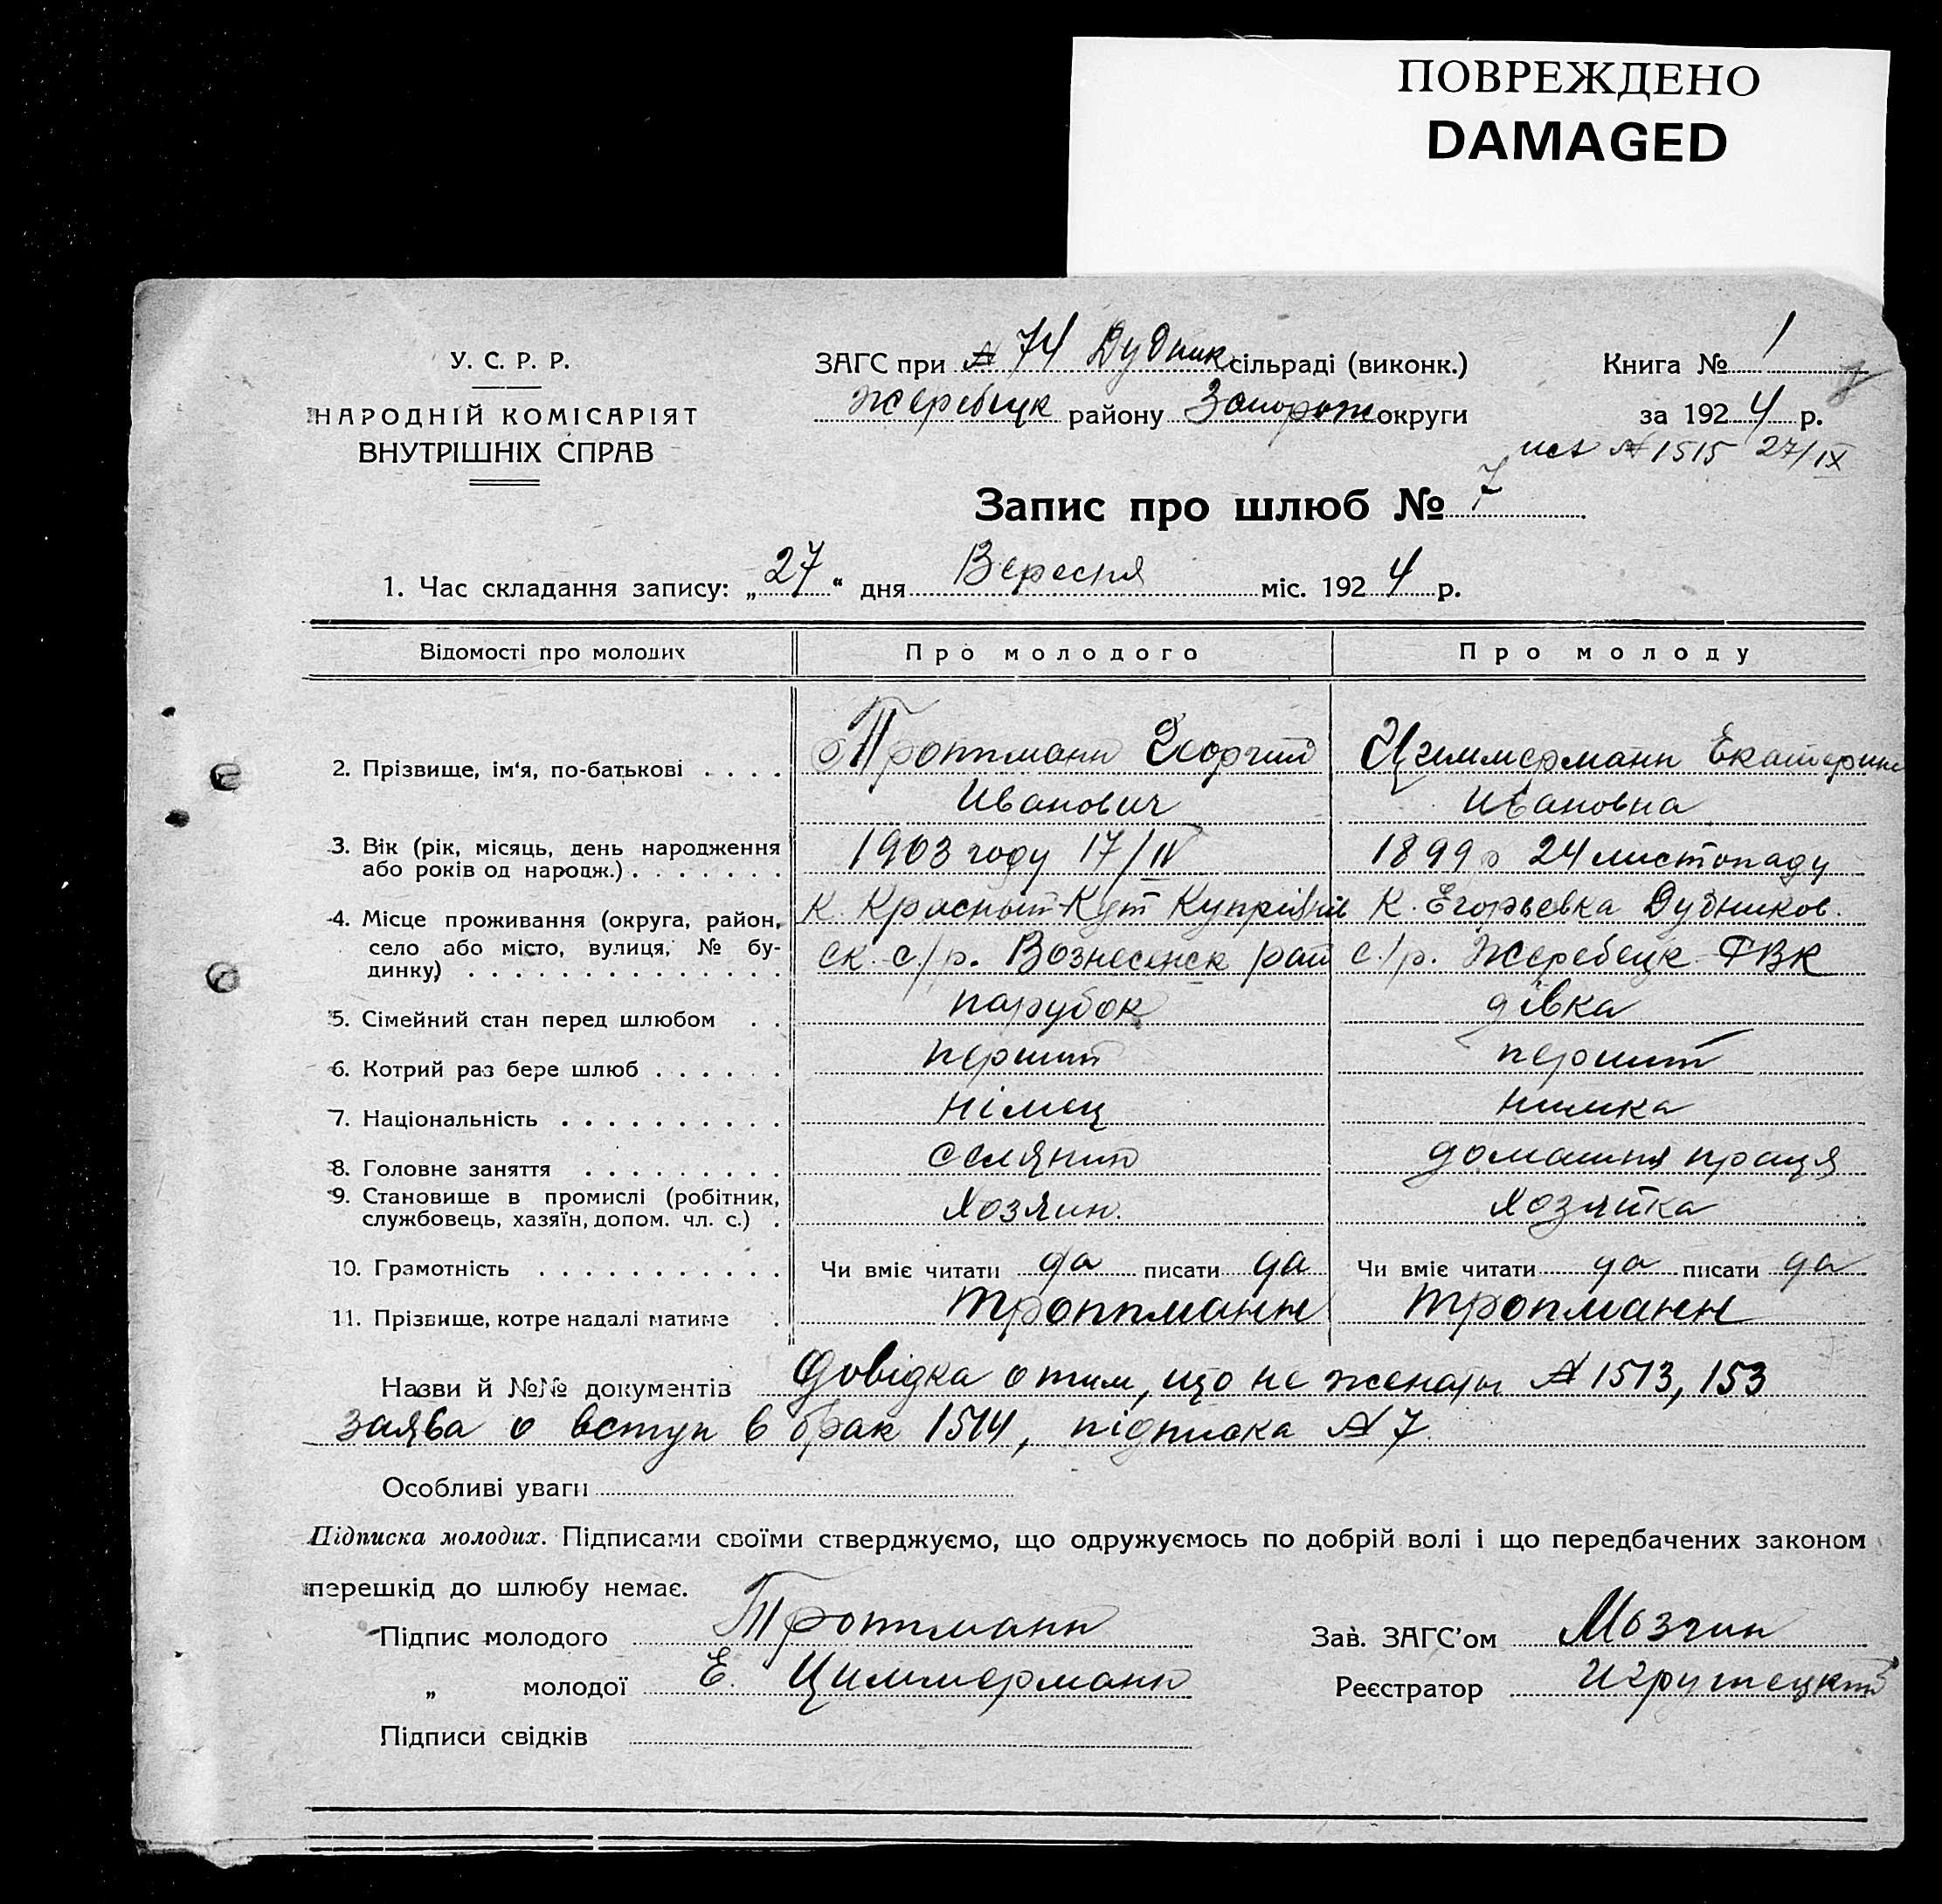 ПОВРЕЖДЕНО
DAMAGED
У. С. Р. Р.
НАРОДНІЙ КОМІСАРІЯТ
ВНУТРІШНІХ СПРАВ
ЗАГС при № 74 Дудник сільраді (виконк.)
Жеребецк району Запорож округи
Книга № 1
за 1924 р.
исх № 1515 27/IX
Запис про шлюб № 7
1. Час складання запису: „27“ дня Вересня міс. 1924 р.
Відомості про молодих Про молодого Про молоду
2. Прізвище, ім‘я, по-батькові . . . . Троппманн Георгий Циммерманн Екатерина
Иванович Ивановна
3. Вік (рік, місяць, день народження
або років од народж.) . . . . . . . 1903 году 17/IV 1899 р 24 листопаду
4. Місце проживання (округа, район, к. Красный-Кут к. Егорьевка Дудников.
село або місто, вулиця, № бу-
динку) . . . . . . . . . . . . . . ск. с/р. Вознесенск рай с/р. Жеребецк РВК
5. Сімейний стан перед шлюбом . . парубок дівка
6. Котрий раз бере шлюб . . . . . . перший перший
7. Національність . . . . . . . . . . німец нимка
8. Головне заняття . . . . . . . . . селянин домашня праця
9. Становище в промислі (робітник,
службовець, хазяїн, допом. чл. с.) . Хозяин. Хозяйка
10. Грамотність . . . . . . . . . . . Чи вміє читати да писати да Чи вміє читати да писати да
11. Прізвище, котре надалі матиме . Троппманн Тропманн
Назви й №№ документів Довідка о тим, що не женаты № 1513, 153
заява о вступ в брак 1514, підписка № 7.
Особливі уваги
Підписка молодих. Підписами своїми стверджуємо, що одружуємось по добрій волі і що передбачених законом
перешкід до шлюбу немає.
Підпис молодого Троппманн Зав. ЗАГС'ом Мозгин
„ молодої Е. Циммерманн Реєстратор
Підписи свідків